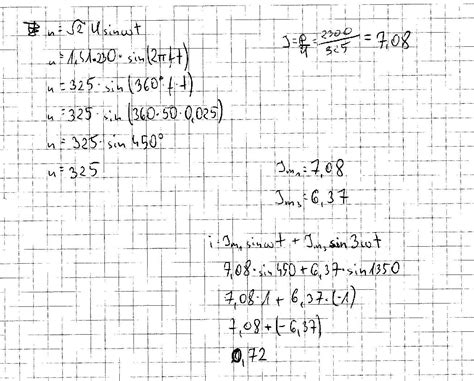 u = √2 U sin ωt
u = 1,41·230 · sin(2πf·t)
u = 325 · sin(360°·f·t)
u = 325 · sin(360·50·0,025)
u = 325 · sin 450°
u = 325
I = P/U = 2300/325 = 7,08
Im₁ = 7,08
Im₃ = 6,37
i = Im₁ sin ωt + Im₃ sin 3ωt
7,08 · sin 450 + 6,37 · sin 1350
7,08 · 1 + 6,37 · (-1)
7,08 + (-6,37)
0,72